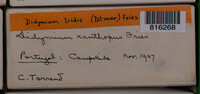 Didymium Iridis (Ditmar) Fries
816268
Didymium xanthopus Fries
Portugal: Nov. 1907
C. Torrend